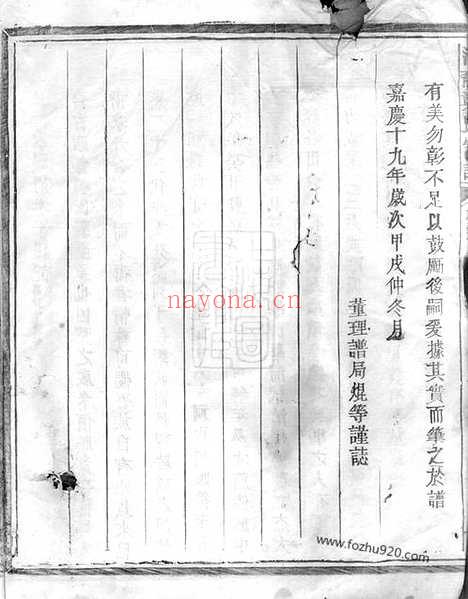 有美勿彰不足以鼓勵後嗣爰據其實而筆之於譜
嘉慶十九年歲次甲戌仲冬月
董理譜局焜等謹誌
nayona.cn
www.fozhu920.com